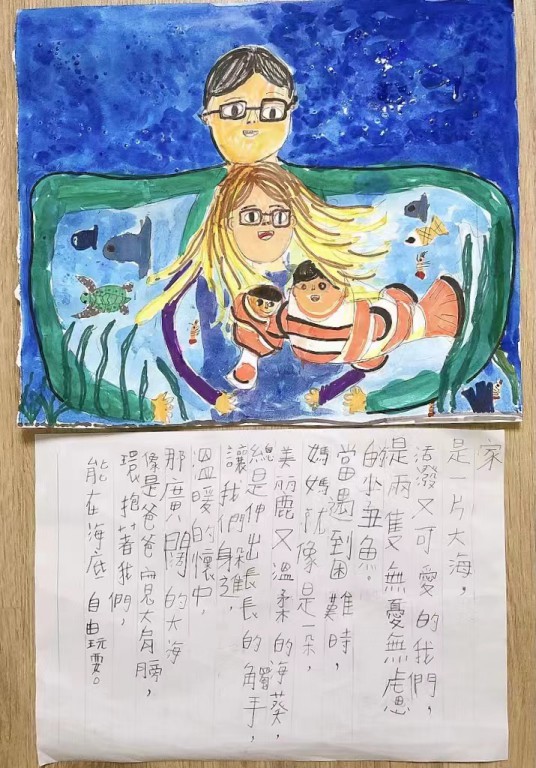 家
是一片大海，
活潑又可愛的我們，
是兩隻無憂無慮
的小丑魚。
當遇到困難時，
媽媽就像是一朵，
美麗又溫柔的海葵，
總是伸出長長的觸手，
讓我們躲進
溫暖的懷中，
那廣闊的大海
像是爸爸寬大肩膀，
環抱著我們，
能在海底自由玩耍。